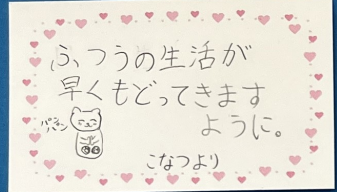 ふつうの生活が
早くもどってきます
ように。
こなつより